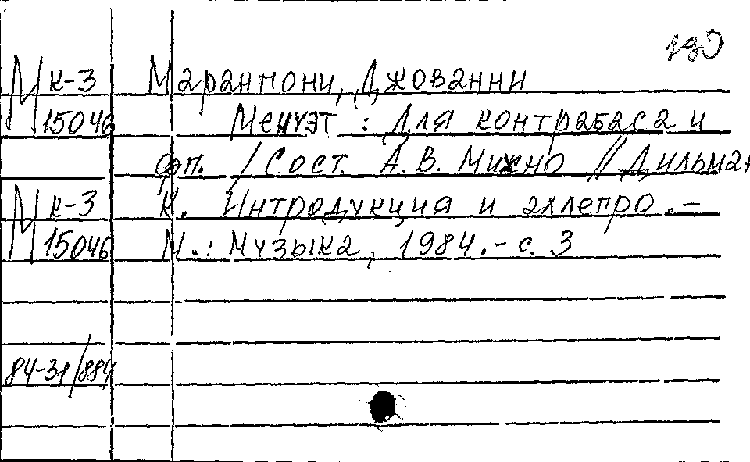 190
М к-3 Марантони, Джованни
15046 Менуэт : Для контрабаса и
фп. / Сост. А.В. Михно // Дильман
М к-3 К. Интродукция и аллегро. –
15046 М.: Музыка, 1984. – с. 3
84-31/884